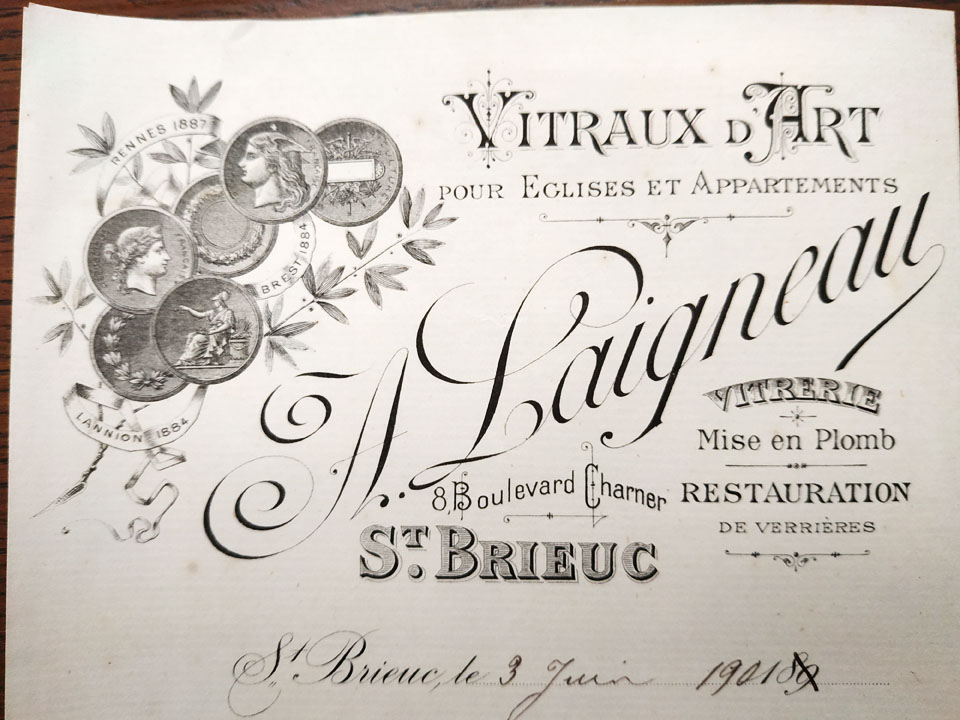 VITRAUX D'ART
POUR EGLISES ET APPARTEMENTS
RENNES 1887
BREST 1884
LANNION 1884
A. Laigneau
VITRERIE
Mise en Plomb
RESTAURATION
DE VERRIÈRES
8, Boulevard Charner
ST. BRIEUC
St Brieuc, le 3 Juin 1901